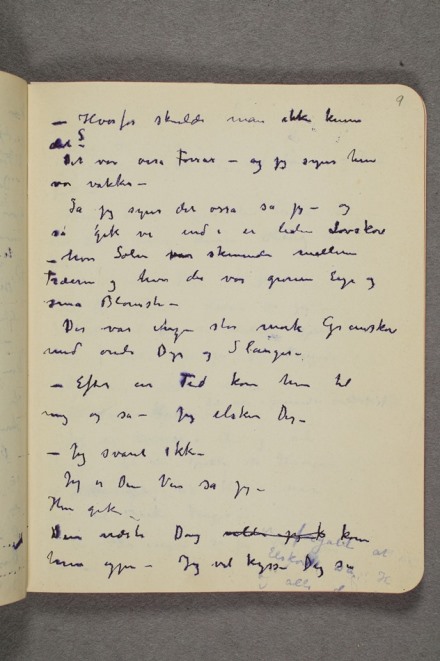 9
— Hvorfor skulde man ikke kunne
det S
Det var ossa Forraar — og jeg synes hun
var vakker —
Ja jeg synes det ossa sa jeg — og
så gik vi ind i en liden Lovskov
— hvor Solen skinnede mellem
Træerne og hvor der var grønne Enge og
sma Blomster —
Der var ingen stor mørk Granskov
med onde Dyr og Slanger —
— Efter en Tid kom hun til
mig og sa — Jeg elsker Dig —
— Jeg svarte ikke —
Jeg er Din Ven sa jeg —
Hun gik —
Den næste Dag kom
hun igjen — Jeg vil kysse Dig sa